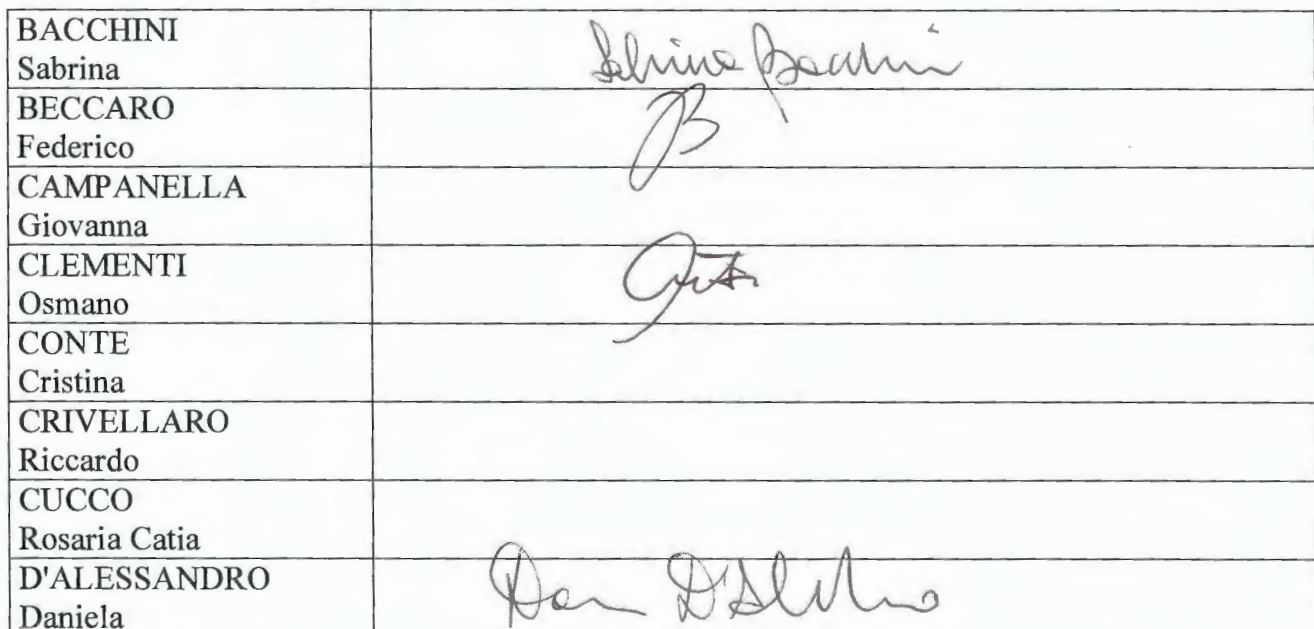 BACCHINI
Sabrina
Sabrina Bacchini
BECCARO
Federico
B
CAMPANELLA
Giovanna
CLEMENTI
Osmano
CONTE
Cristina
CRIVELLARO
Riccardo
CUCCO
Rosaria Catia
D'ALESSANDRO
Daniela